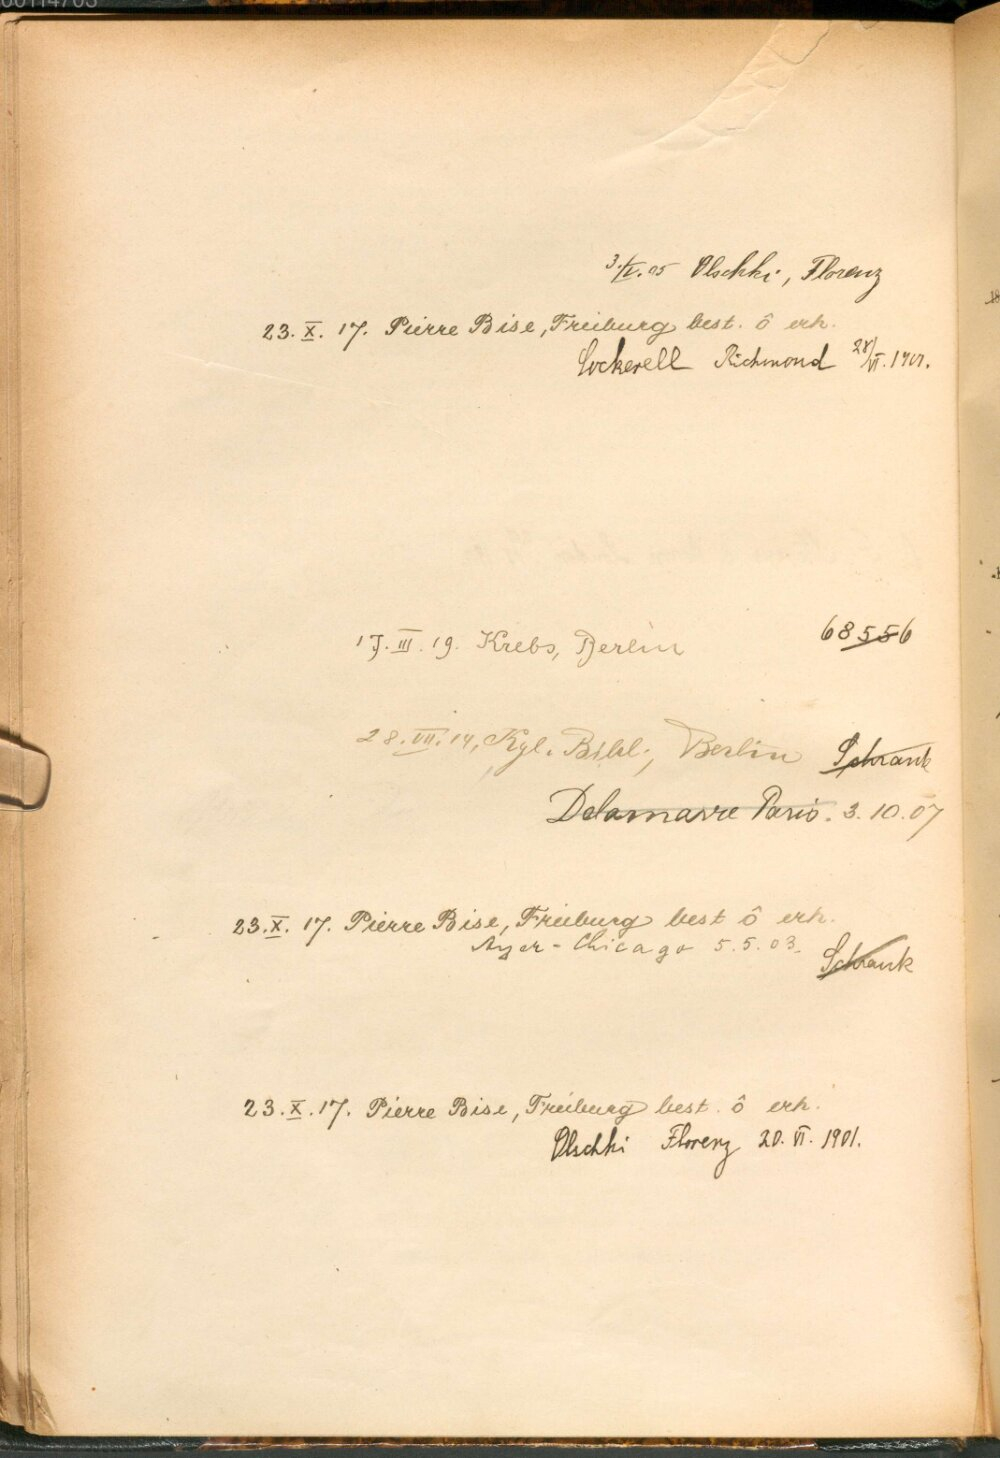 3./V.05 Olschki, Florenz
23. X. 17. Pierre Bise, Freiburg best. ô erh.
Cockerell Richmond 28/VI. 1901.
17. III. 19. Krebs, Berlin 68556
28. VII. 14, Kgl. Bibl., Berlin Schrank
Delamarre Paris. 3. 10. 07
23. X. 17. Pierre Bise, Freiburg best ô erh.
Ayer - Chicago 5. 5. 03.
Schrank
23. X. 17. Pierre Bise, Freiburg best. ô erh.
Olschki Florenz 20. VI. 1901.